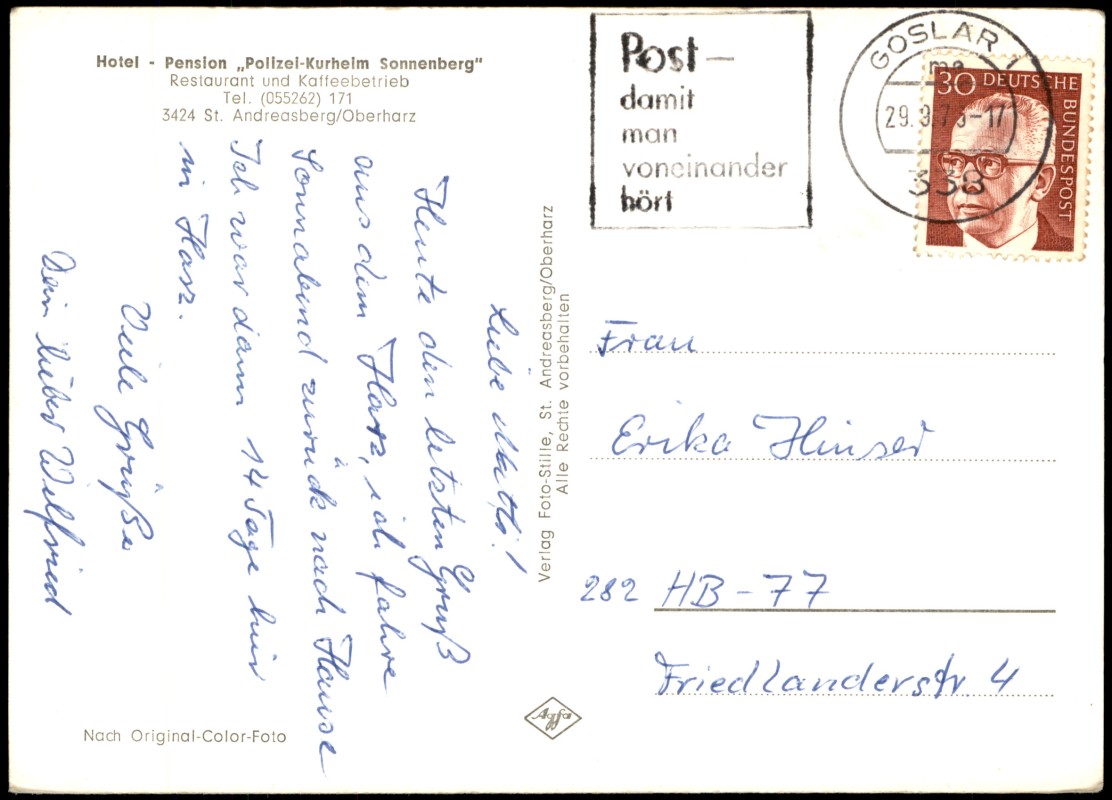 Hotel - Pension „Polizei-Kurheim Sonnenberg"
Restaurant und Kaffeebetrieb
Tel. (055262) 171
3424 St. Andreasberg/Oberharz
Liebe
Heute den letzten Gruß
aus dem Harz, ich fahre
Sonnabend zurück nach Hause
Ich war dann 14 Tage hier
in Harz.
Viele Grüße
Dein lieber Wilfried
Nach Original-Color-Foto
Verlag Foto-Stille, St. Andreasberg/Oberharz
Alle Rechte vorbehalten
Agfa
Post –
damit
man
voneinander
hört
GOSLAR 1
me
338
30 DEUTSCHE
BUNDESPOST
Frau
Erika Hinser
282 HB - 77
Friedlanderstr. 4